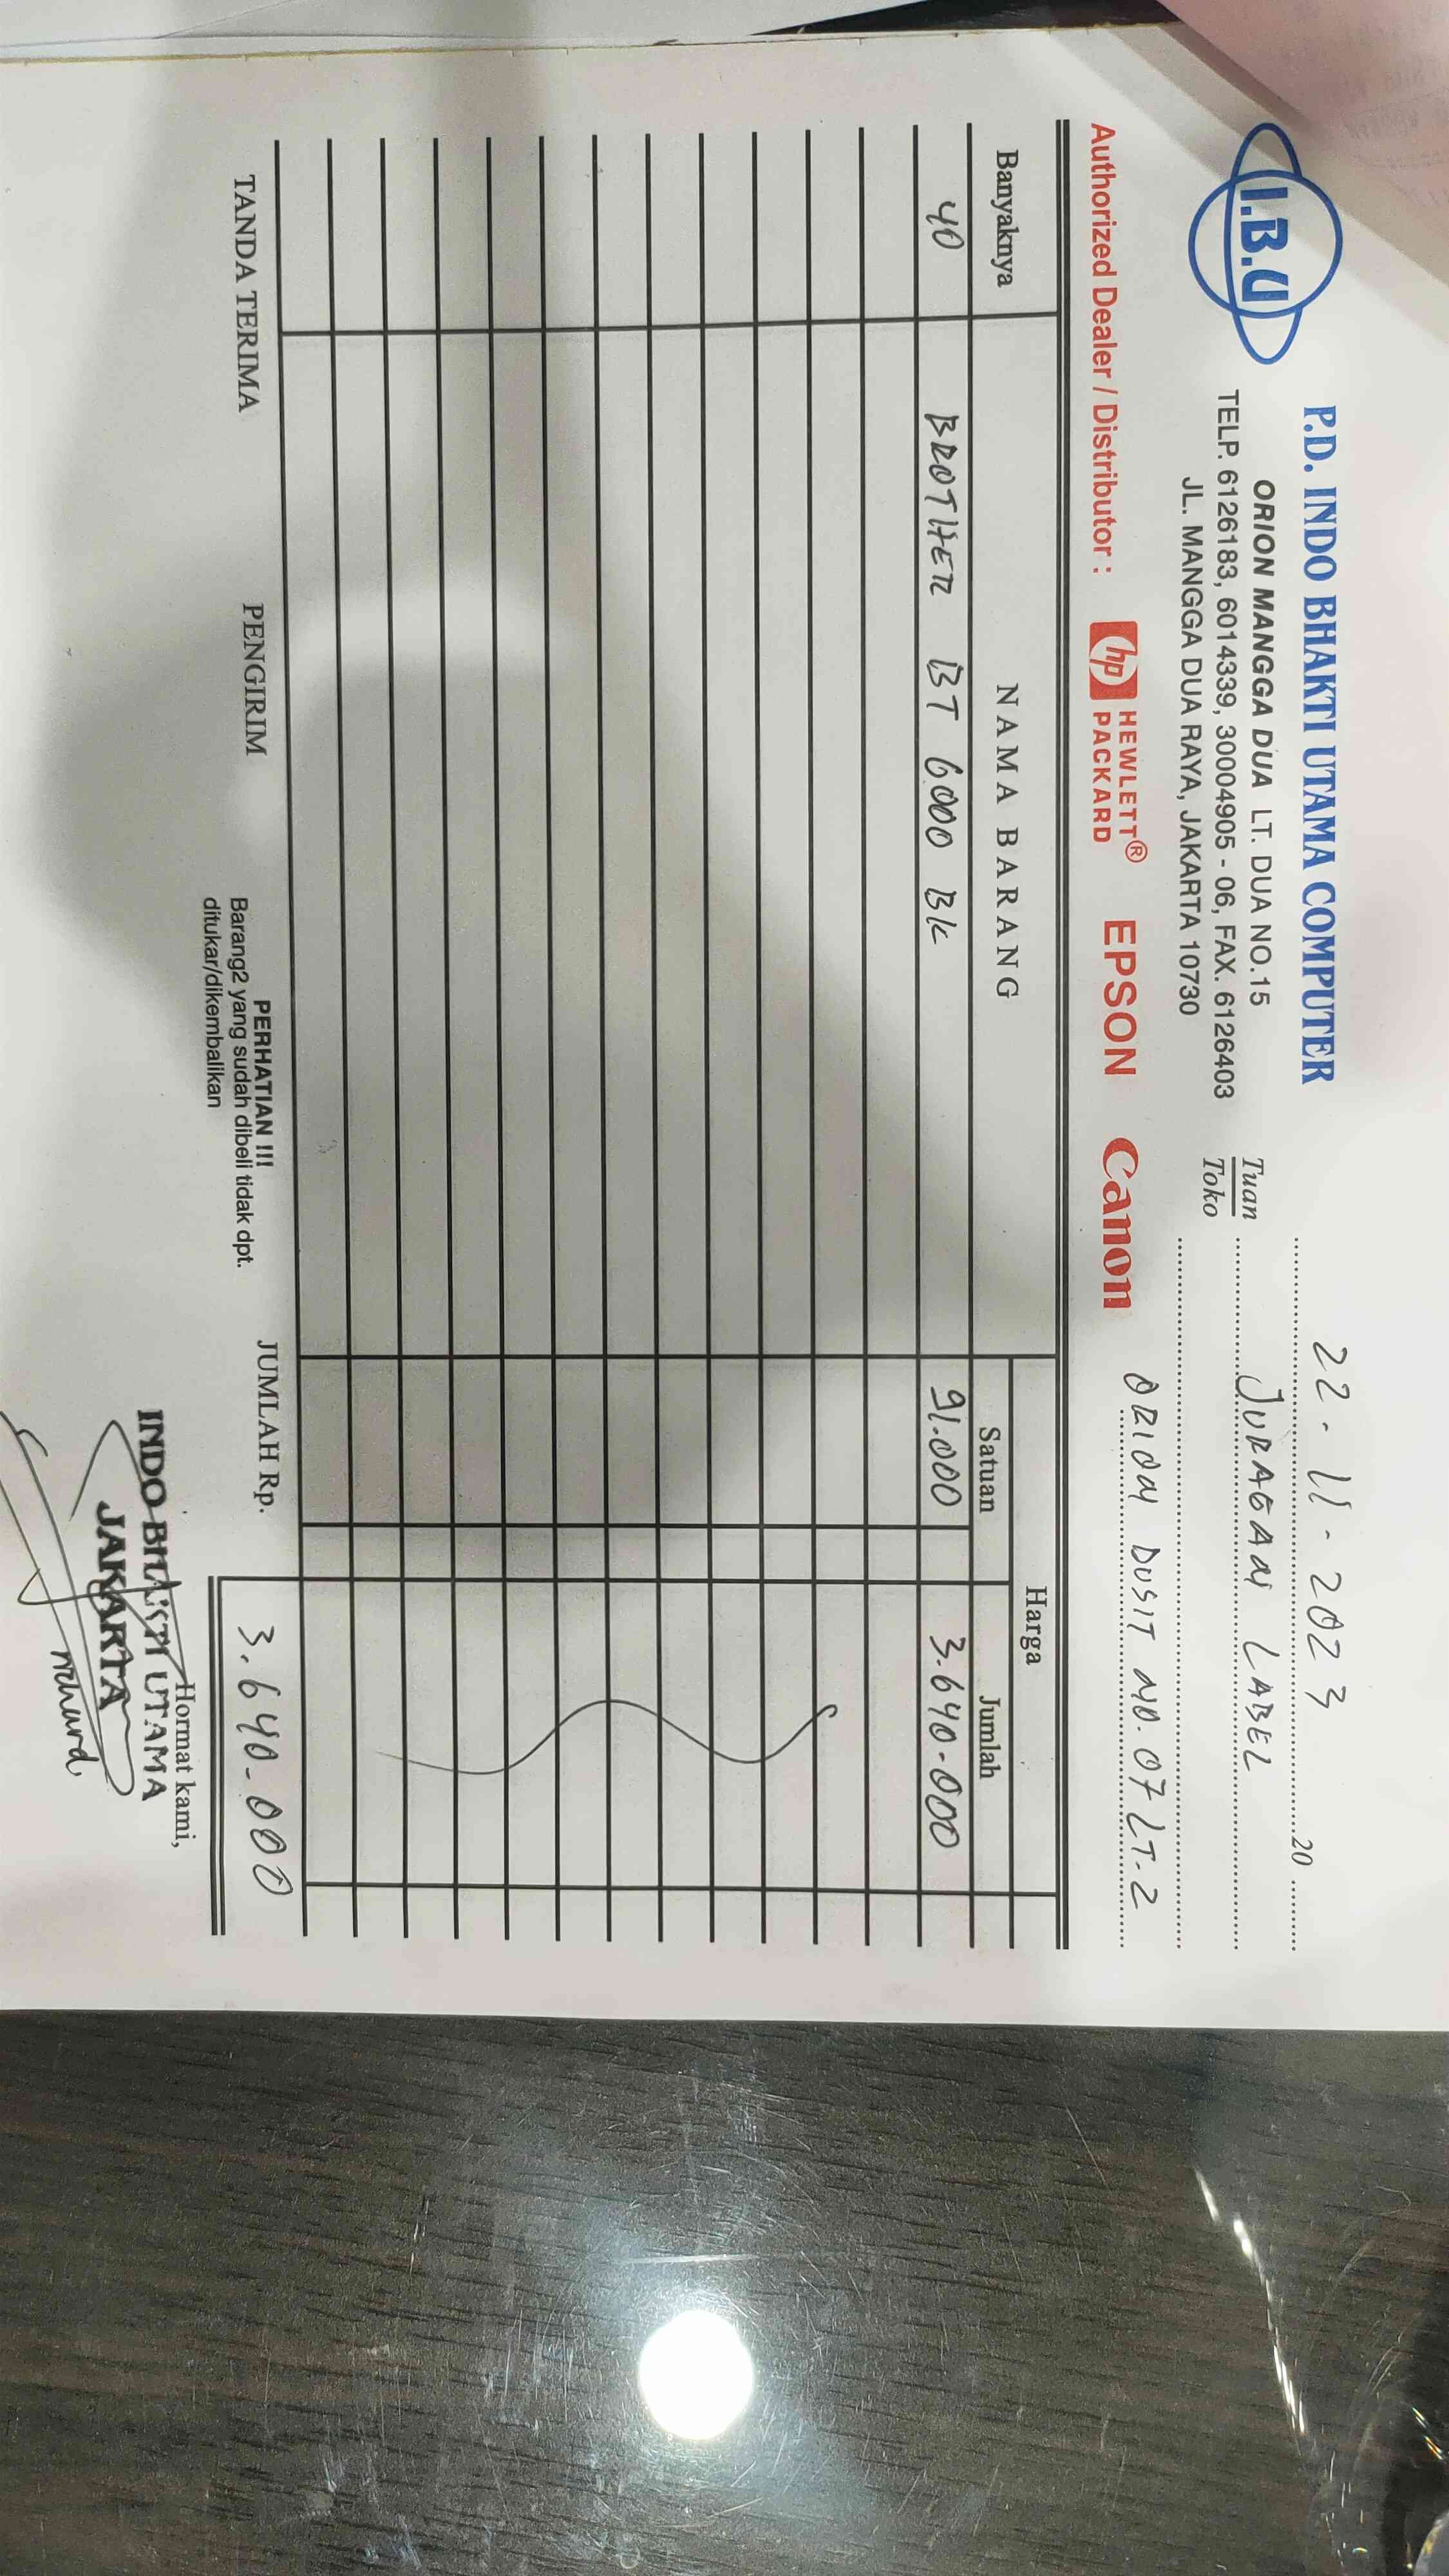 I.B.U
P.D. INDO BHAKTI UTAMA COMPUTER
ORION MANGGA DUA LT. DUA NO.15
TELP. 6126183, 6014339, 30004905 - 06, FAX. 6126403
JL. MANGGA DUA RAYA, JAKARTA 10730
22-11-2023 20
Tuan JURAGAN LABEL
Toko
ORION DUSIT NO. 07 LT. 2
Authorized Dealer / Distributor : hp HEWLETT® PACKARD EPSON Canon
Banyaknya NAMA BARANG Harga
Satuan Jumlah
40 BROTHER BT 6000 BK 91.000 3.640.000
TANDA TERIMA PENGIRIM JUMLAH Rp. 3.640.000
PERHATIAN !!!
Barang2 yang sudah dibeli tidak dpt.
ditukar/dikembalikan
Hormat kami,
INDO BHAKTI UTAMA
JAKARTA